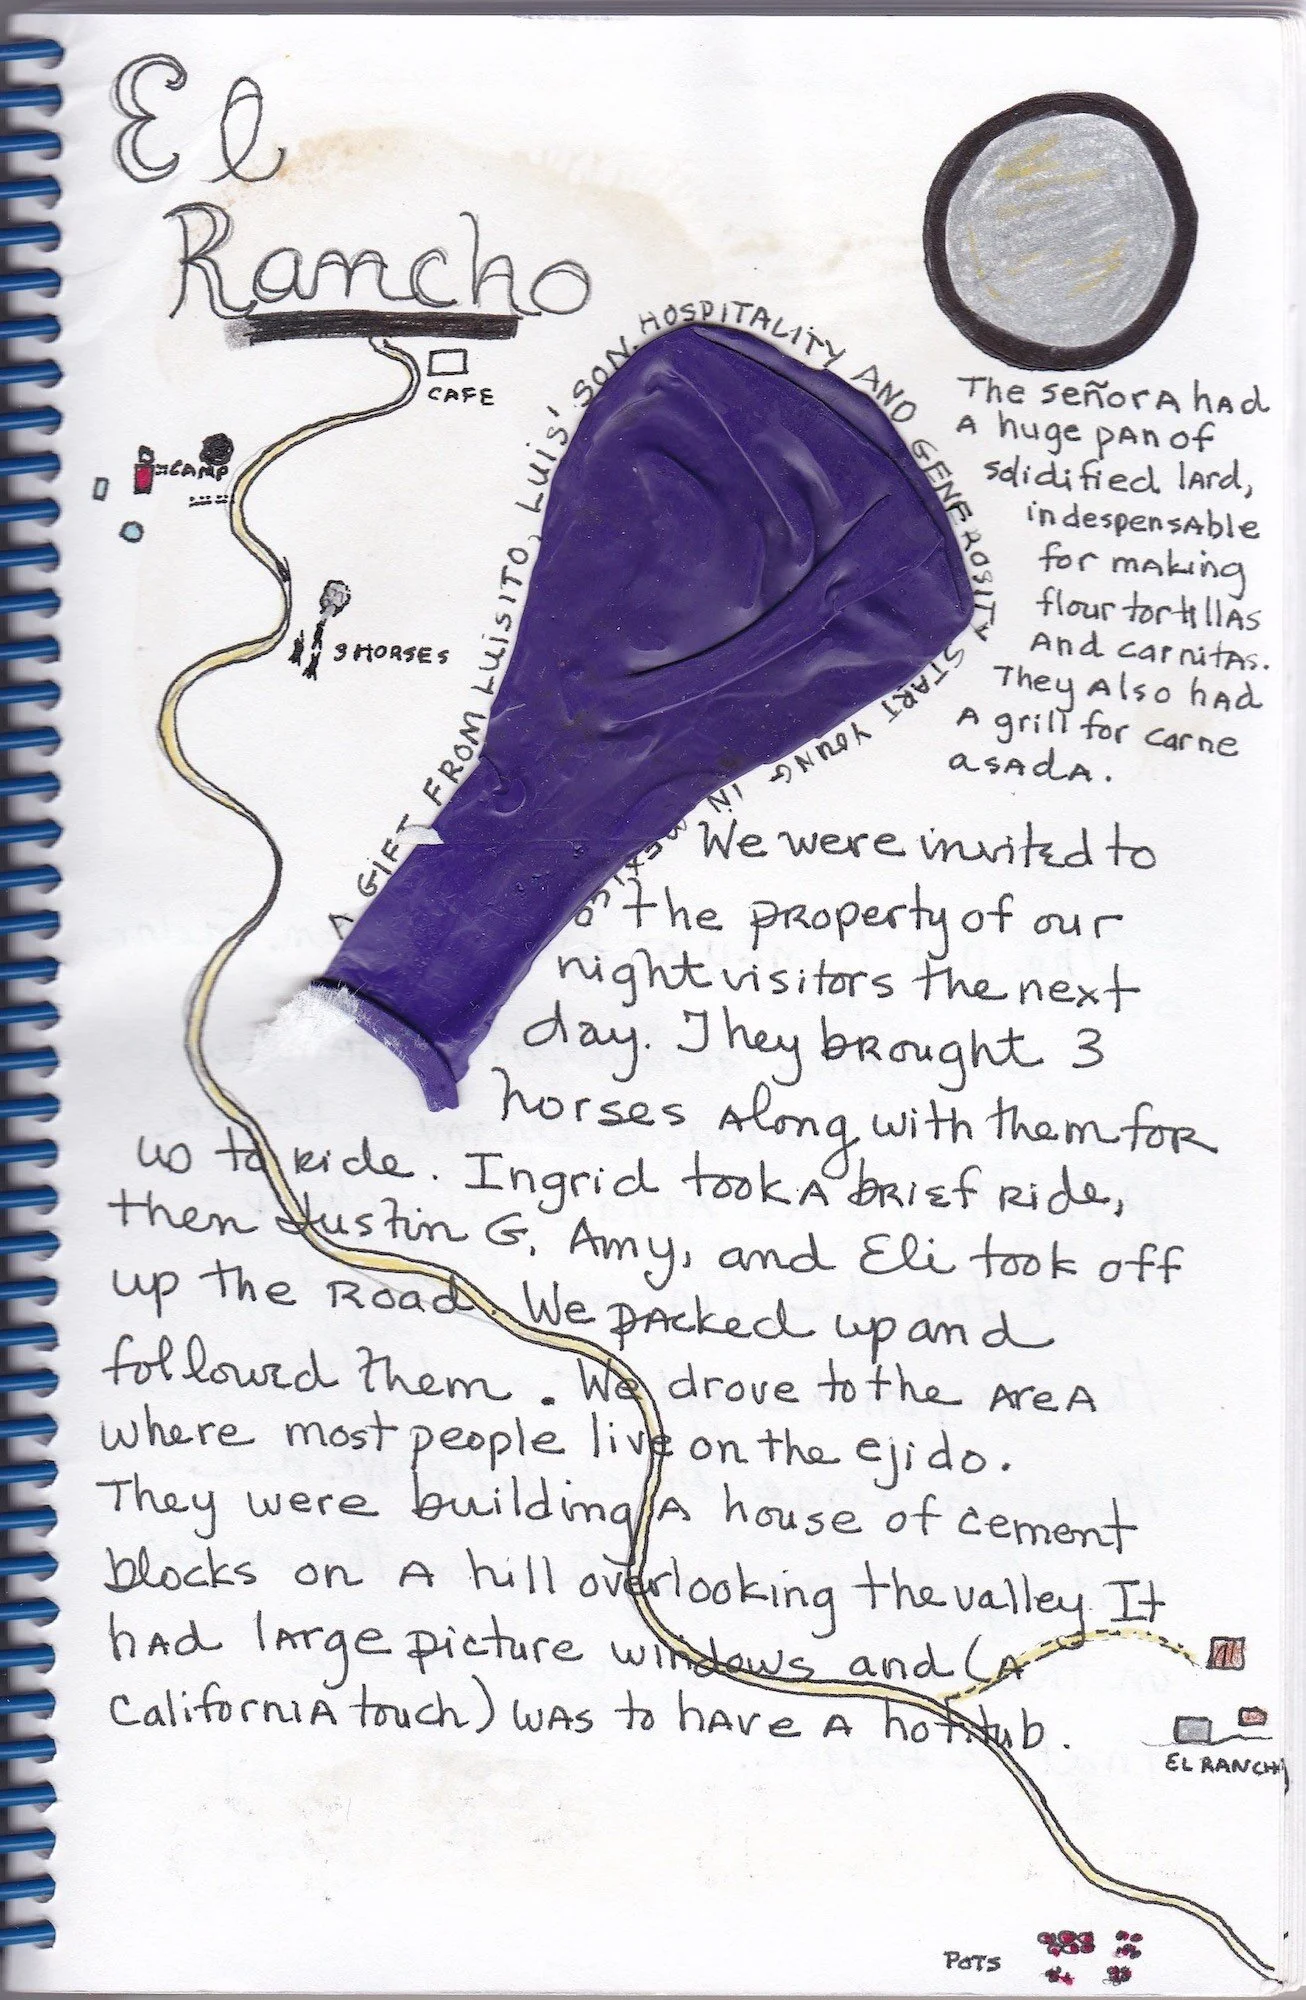 El
Rancho
CAFE
=CAMP
3 HORSES
A GIFT FROM LUISITO, LUIS' SON. HOSPITALITY AND GENEROSITY START YOUNG IN MEXICO
The señorA hAd
A huge pAn of
solidified lArd,
indespensAble
for mAking
flour tortillAs
And cArnitAs.
They Also hAd
A grill for carne
asAdA.
We were invited to
the property of our
night visitors the next
day. They brought 3
horses Along with them for
us to ride. Ingrid took A brief ride,
then Justin G, Amy, and Eli took off
up the Road. We pAcked up and
followed them. We drove to the AreA
where most people live on the ejido.
They were building A house of cement
blocks on A hill overlooking the valley. It
hAd lArge picture windows and (A
CaliforniA touch) wAs to hAve A hot tub.
EL RANCHO
POTS